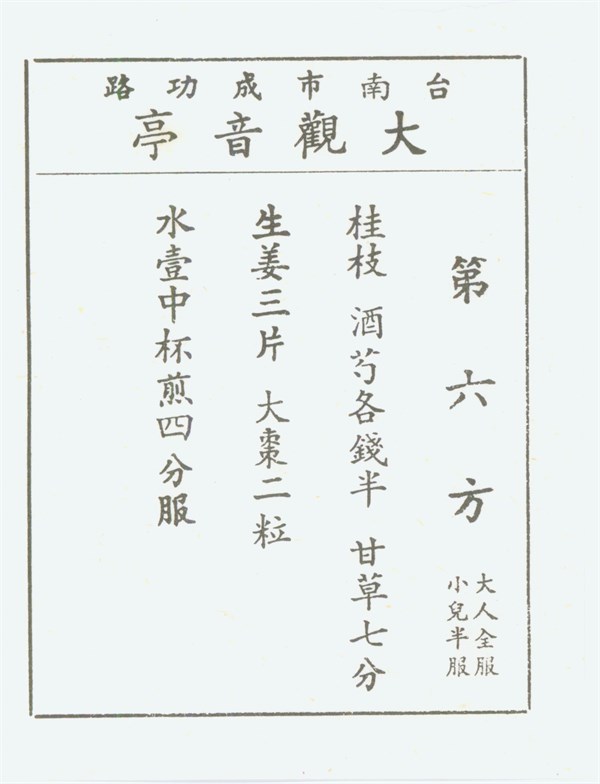 台南市成功路
大觀音亭
第六方
大人全服
小兒半服
桂枝 酒芍各錢半 甘草七分
生姜三片 大棗二粒
水壹中杯煎四分服